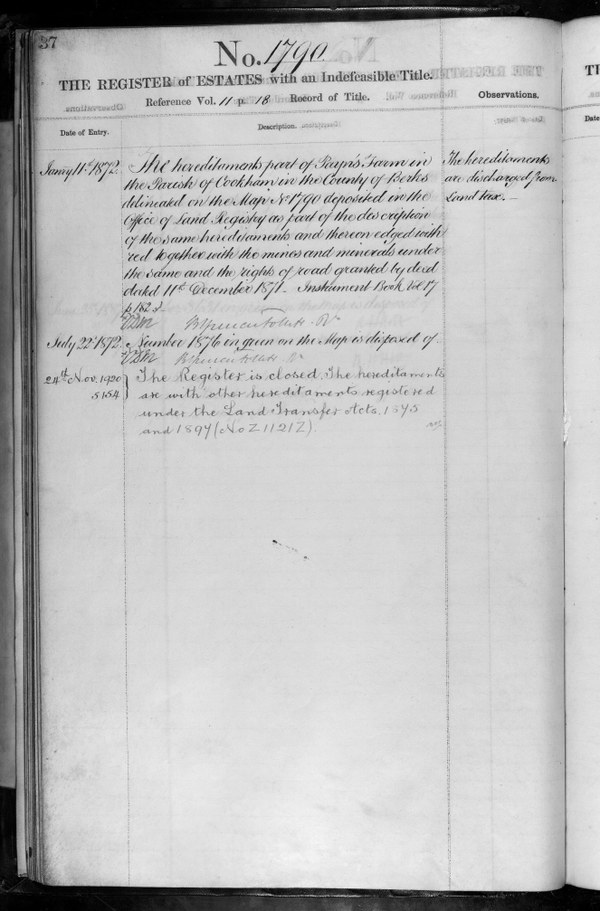 37
No. 1790
THE REGISTER of ESTATES with an Indefeasible Title.
Reference Vol. 11 p. 18 Record of Title.
Observations.
Date of Entry.
Description.
Janry 11th 1872.
The hereditaments part of Farm in
the Parish of Cookham in the County of Berks
delineated on the Map No 1790 deposited in the
Office of Land Registry as part of the description
of the same hereditaments and thereon edged with
red together with the mines and minerals under
the same and the rights of road granted by deed
dated 11th December 1871. Instrument Book Vol 17
p 162
The hereditaments
are discharged from
Land tax.
July 22d 1872.
Number 1876 in green on the Map is disposed of
24th Nov. 1920
S 154
The Register is closed. The hereditaments
are with other hereditaments registered
under the Land Transfer Acts, 1875
and 1897 (No Z 1121Z).